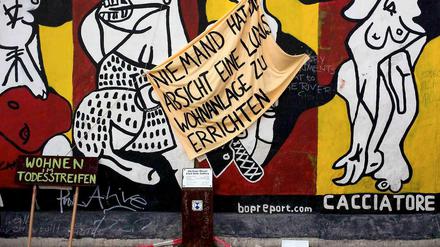 NIEMAND HAT DIE
ABSICHT EINE LUXUS
WOHNANLAGE ZU
ERRICHTEN
WOHNEN
IM
TODESSTREIFEN
bopreport.com
CACCIATORE